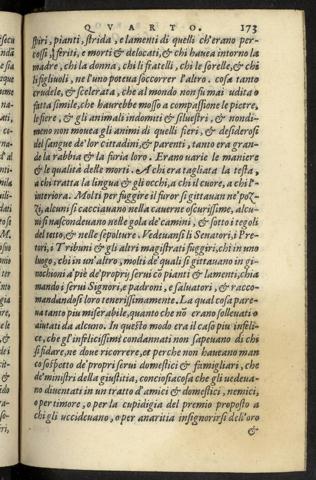 QVARTO. 173
spiri, pianti, strida, e lamenti di quelli ch'erano per-
cossi, feriti, e morti & delocati, & chi hauea intorno la
madre, chi la donna, chi li fratelli, chi le sorelle, & chi
li figliuoli, ne l'uno potea soccorrer l'altro. cosa tanto
crudele, & scelerata, che al mondo non fu mai udita o
fatta simile, che haurebbe mosso a compassione le pietre,
le fiere, & gli animali indomiti & siluestri, & nondi-
meno non mouea gli animi di quelli fieri, & desiderosi
del sangue de' lor cittadini, & parenti, tanto era gran-
de la rabbia & la furia loro. Erano uarie le maniere
& le qualità delle morti. A chi era tagliata la testa,
a chi tratta la lingua & gli occhi, a chi il cuore, a chi l'in-
teriora. Molti per fuggire il furor si gittauan ne' poZ-
Zi, alcuni si cacciauano nella cauerne oscurissime, alcu-
ni si nascondeuano nelle gola de' camini, & sotto i tegoli
del tetto, & nelle sepolture. Vedeuansi li Senatori, i Pre-
tori, i Tribuni & gli altri magistrati fuggiri, chi in uno
luogo, chi in un'altro, molti de' quali si gittauano in gi-
nochioni a' piè de' proprÿ serui cō pianti & lamenti, chia
mando i serui Signori, e padroni, e saluatori, & racco-
mandandosi loro tenerissimamente. La qual cosa pare-
ua tanto piu miserabile, quanto che nō erano solleuati o
aiutati da alcuno. In questo modo era il caso piu infeli-
ce, che gl'infelicissimi condannati non sapeuano di chi
si fidare, ne doue ricorrere, et perche non haueano man
co sospetto de' proprÿ serui domestici & famigliari, che
de' ministri della giustitia, conciosiacosa che gli uedeua-
no diuentati in un tratto d'amici & domestici, nemici,
o per timore, o per la cupidigia del premio proposto a
chi gli uccideuano, o per auaritia insignorirsi dell'oro
&